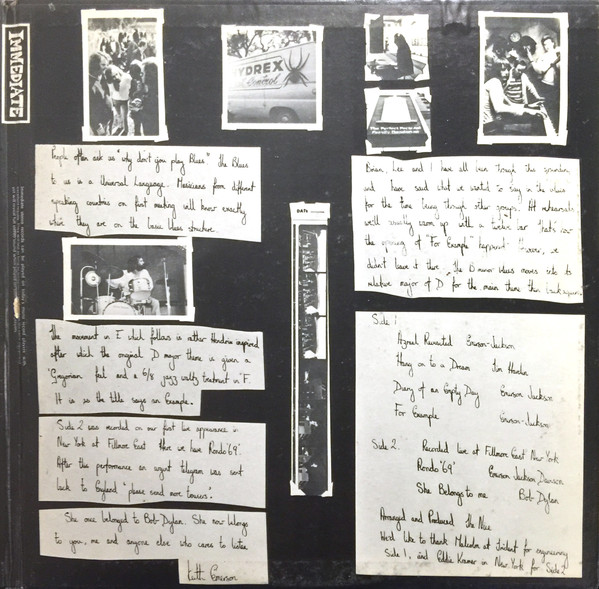 IMMEDIATE
YDREX
Control
The Perfect Portrait
DATE
People often ask us "why don't you play Blues" the Blues
to us is a Universal Language. Musicians from different
speaking countries on first meeting will know exactly
where they are on the basic blues structure.
Brian, Lee and I have all been through this grounding
and have said what we wanted to say in the blues
for the time being through other groups. At rehearsals
we'll usually warm up with a twelve bar that's how
the opening of "For Example" happened. However, we
didn't leave it there, the B minor blues moves into its
relative major of D for the main theme then back again.
The movement in E which follows is rather Hendrix inspired
after which the original D major theme is given a
Gregorian feel and a 6/8 jazz waltz treatment in F.
It is as the title says an Example.
Side 2 was recorded on our first live appearance in
New York at Fillmore East. Here we have Rondo '69'.
After the performance an urgent telegram was sent
back to England "please send more trousers".
She once belonged to Bob-Dylan. She now belongs
to you, me and anyone else who cares to listen.
Keith Emerson
Side 1.
Azrael Revisited Emerson-Jackson
Hang on to a Dream Tim Hardin
Diary of an Empty Day Emerson Jackson
For Example Emerson-Jackson
Side 2. Recorded live at Fillmore East New York
Rondo '69' Emerson Jackson Davison
She Belongs to me Bob-Dylan
Arranged and Produced the Nice
We'd like to thank Malcolm at Trident for engineering
Side 1, and Eddie Kramer in New York for Side 2